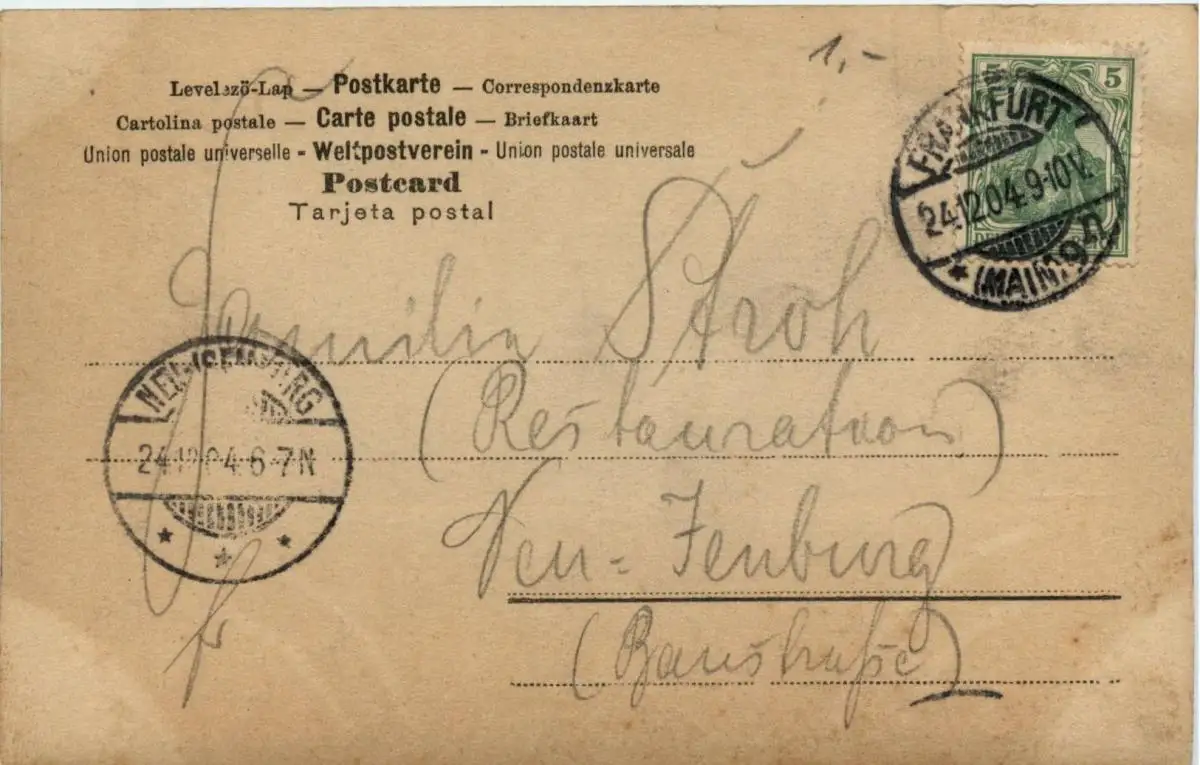 1,-
Levelező-Lap — Postkarte — Correspondenzkarte
Cartolina postale — Carte postale — Briefkaart
Union postale universelle - Weltpostverein - Union postale universale
Postcard
Tarjeta postal
5 5
FRANKFURT
24.12.04.9-10V.
* (MAIN) 9
Familie Stroh
(Restauration)
Neu-Isenburg
(Baustraße)
NEU-ISENBURG
24.12.04.6-7N